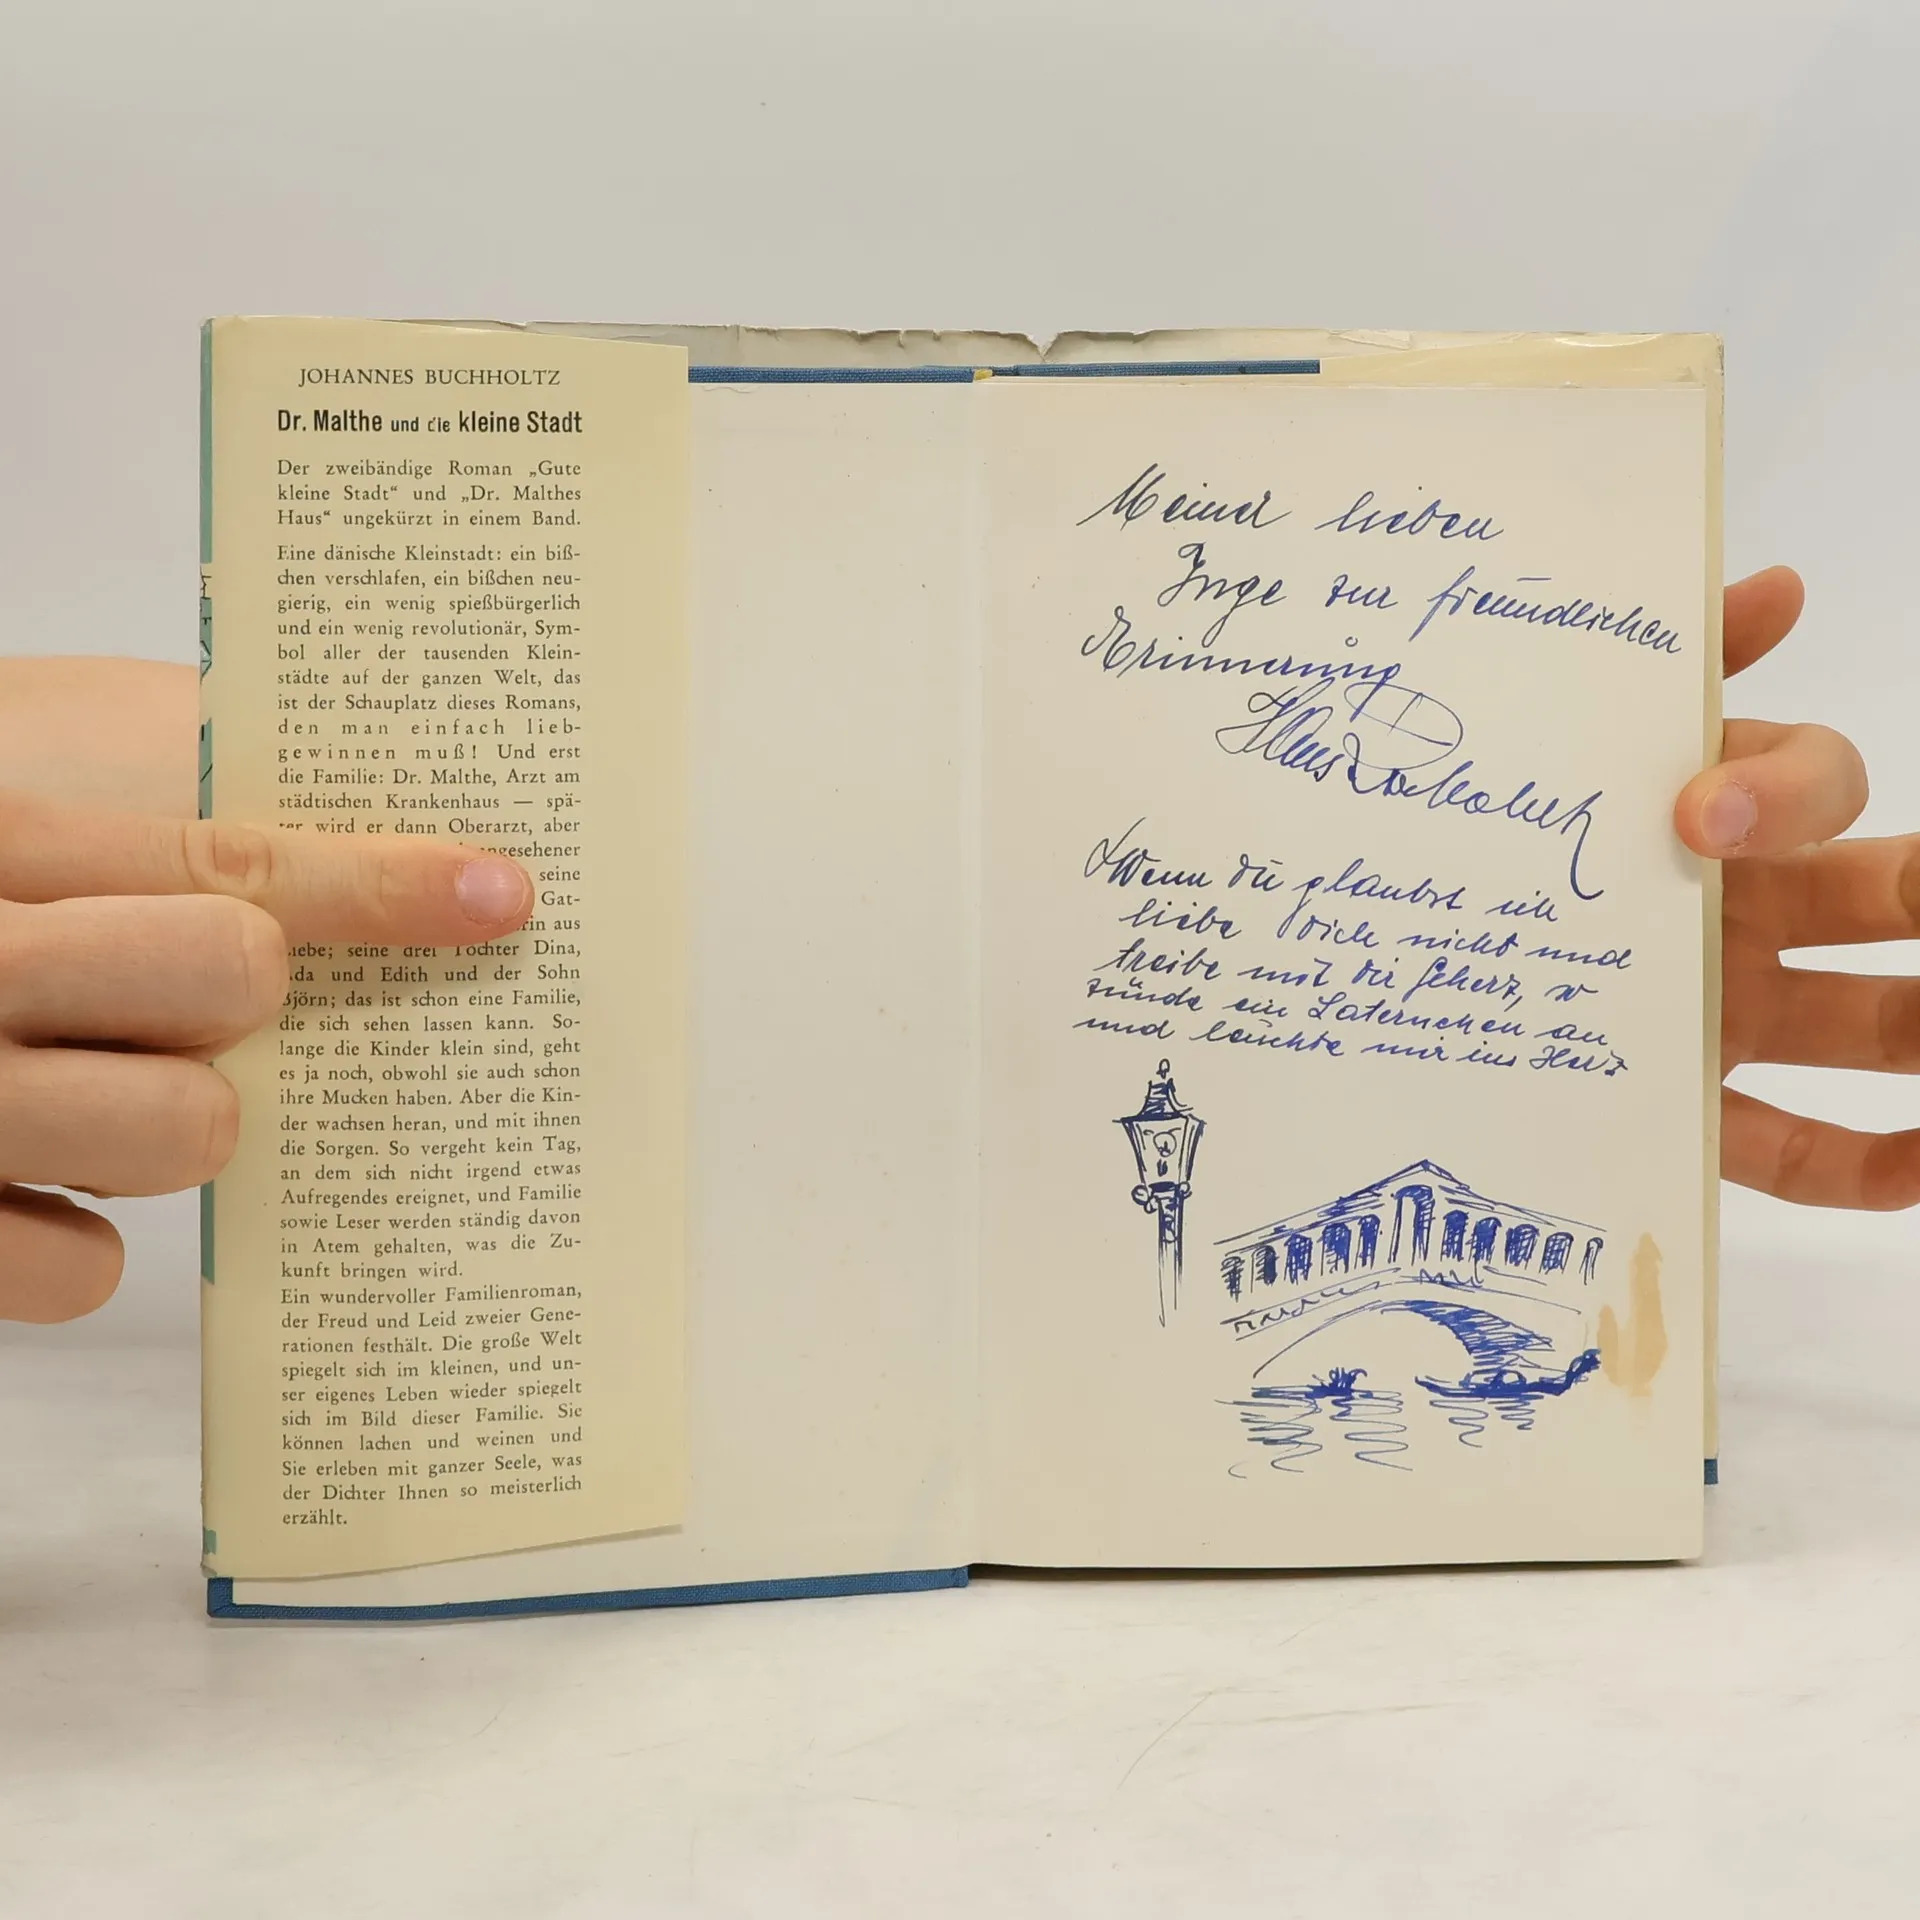 JOHANNES BUCHHOLTZ
Dr. Malthe und die kleine Stadt
Der zweibändige Roman „Gute
kleine Stadt“ und „Dr. Malthes
Haus“ ungekürzt in einem Band.
Eine dänische Kleinstadt: ein biß-
chen verschlafen, ein bißchen neu-
gierig, ein wenig spießbürgerlich
und ein wenig revolutionär, Sym-
bol aller der tausenden Klein-
städte auf der ganzen Welt, das
ist der Schauplatz dieses Romans,
den man einfach lieb-
gewinnen muß! Und erst
die Familie: Dr. Malthe, Arzt am
städtischen Krankenhaus — spä-
ter wird er dann Oberarzt, aber
angesehener
seine
Gat-
aus
Liebe; seine drei Töchter Dina,
Ada und Edith und der Sohn
Björn; das ist schon eine Familie,
die sich sehen lassen kann. So-
lange die Kinder klein sind, geht
es ja noch, obwohl sie auch schon
ihre Mucken haben. Aber die Kin-
der wachsen heran, und mit ihnen
die Sorgen. So vergeht kein Tag,
an dem sich nicht irgend etwas
Aufregendes ereignet, und Familie
sowie Leser werden ständig davon
in Atem gehalten, was die Zu-
kunft bringen wird.
Ein wundervoller Familienroman,
der Freud und Leid zweier Gene-
rationen festhält. Die große Welt
spiegelt sich im kleinen, und un-
ser eigenes Leben wieder spiegelt
sich im Bild dieser Familie. Sie
können lachen und weinen und
Sie erleben mit ganzer Seele, was
der Dichter Ihnen so meisterlich
erzählt.
Meiner lieben
Inge zur freundlichen
Erinnerung
Hans
Wenn du glaubst ich
liebe Dich nicht und
treibe mit dir Scherz, so
zünde ein Laternchen an
und leuchte mir ins Herz